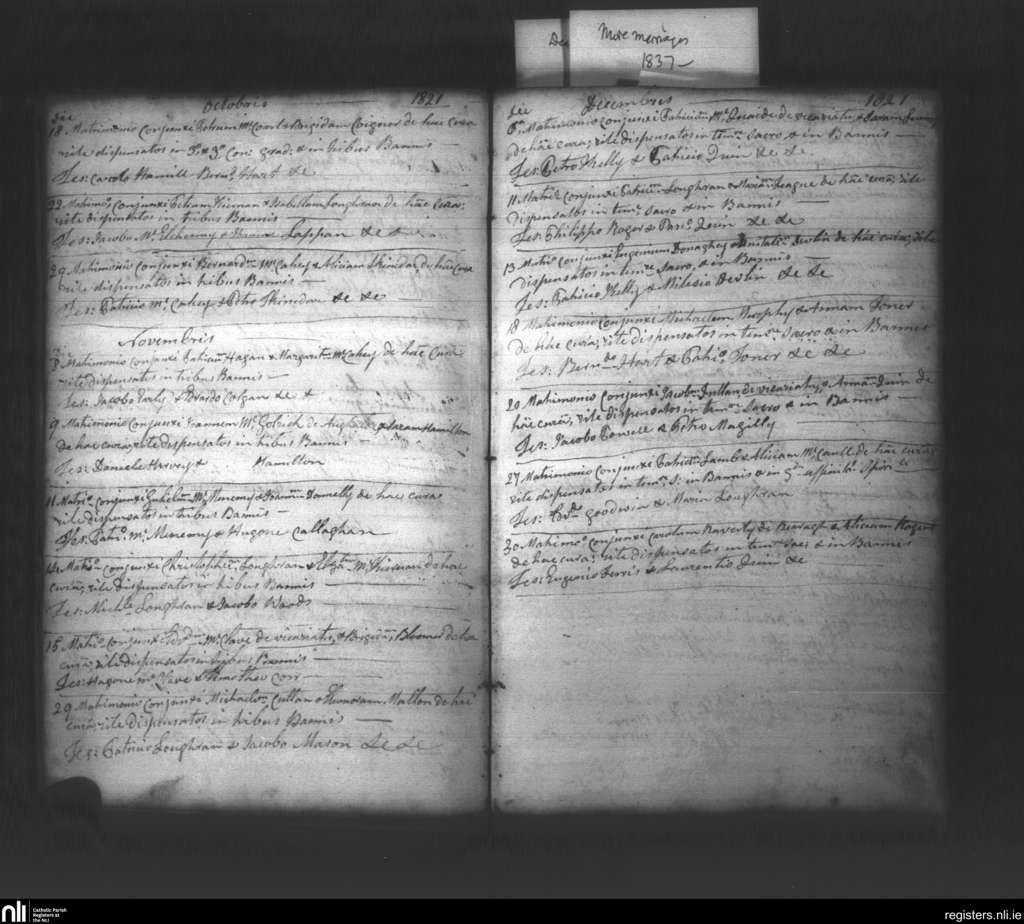 Dec
More marriages
1837
die Octobris 1821
18 Matrimonio Conjunxi Mc Court & Brigidam de hac cura
rite dispensatos in & 3o Con: grad: & in tribus Bannis
Tes: Carolo Hamill Bernd. Hart &c
22 Matrimo. Conjunxi & Isabellam Loughran de hac cura,
rite dispensatos in tribus Bannis
Tes: Jacobo Mc Elhenny & Lappan &c
29 Matrimonio Conjunxi Bernardm. Mc Cahey & Aliciam Skinedar de hac cura
rite dispensatos in tribus Bannis
Tes: Patricio Mc Cahey & Petro Skinedar &c &c
Novembris
die
8 Matrimonio Conjunxi Patricm. Hagan & Margaritm. Mc Cahey de hac cura
rite dispensatos in tribus Bannis
Tes: Jacobo Early & Edvardo Colgan &c
9 Matrimonio Conjunxi Joannem Mc & Saram Hamilton
de hac cura, rite dispensatos in tribus Bannis
Tes: Daniele Harvey & Hamilton
11 Matrio. Conjunxi Mc Menemy & Joannm. Donnelly de hac cura
rite dispensatos in tribus Bannis
Tes: Patrio. Mc Menemy & Hugone Callaghan
14 Matrio. Conjunxi Christopher. Loughran & Elizth. Mc de hac
cura, rite dispensatos in tribus Bannis
Tes: Michle. Loughran & Jacobo Woods
15 Matrio. Conjunxi Mc Clave de vicariatu, & Brigidm. Bloomer de hac
cura, rite dispensatos in tribus Bannis
Tes: Hugone Mc Clave & Timotheo Corr
29 Matrimonio Conjunxi Michaelem Cullan & Mallon de hac
cura, rite dispensatos in tribus Bannis
Tes: Patricio Loughran & Jacobo Mason &c &c
die Decembris 1821
6 Matrimonio Conjunxi Patricium Mc de vicariatu, & Saram
de hac cura, rite dispensatos in temr. Sacro & in Bannis
Tes: Petro Kelly & Patricio Quin &c &c
11 Matrio. Conjunxi Patricm. Loughran & Mariam League de hac cura, rite
dispensatos in temr. Sacro & in Bannis
Tes: Philippo Roger & Quin &c &c
13 Matrio. Conjunxi Eugenium Donaghey & Devlin de hac cura, rite
dispensatos in temre. Sacro, & in Bannis
Tes: Patricio Kelly & Milesio Devlin &c &c
18 Matrimonio Conjunxi Michaelem Murphy & Annam Toner
de hac cura, rite dispensatos in temr. Sacro & in Bannis
Tes: Bernardo Hart & Patrio. Toner &c &c
20 Matrimonio Conjunxi Jacobm. de vicariatu, & Annam Quin de
hac cura, rite dispensatos in temr. Sacro & in Bannis
Tes: Jacobo Powell & Petro Magilly
27 Matrimonio Conjunxi Patricm. Lamb & Aliciam Mc Caull de hac cura,
rite dispensatos in temr. S: in Bannis & in affinit: Spiri
Tes: Goodwin & Maria Loughran
30 Matrimo. Conjunxi Carolum Raverty de & Aliciam Rogers
de hac cura, rite dispensatos in temr. Sacr & in Bannis
Tes: Eugenio Ferris & Laurentio Quin &c
nli
Catholic Parish
Registers at
the NLI
registers.nli.ie